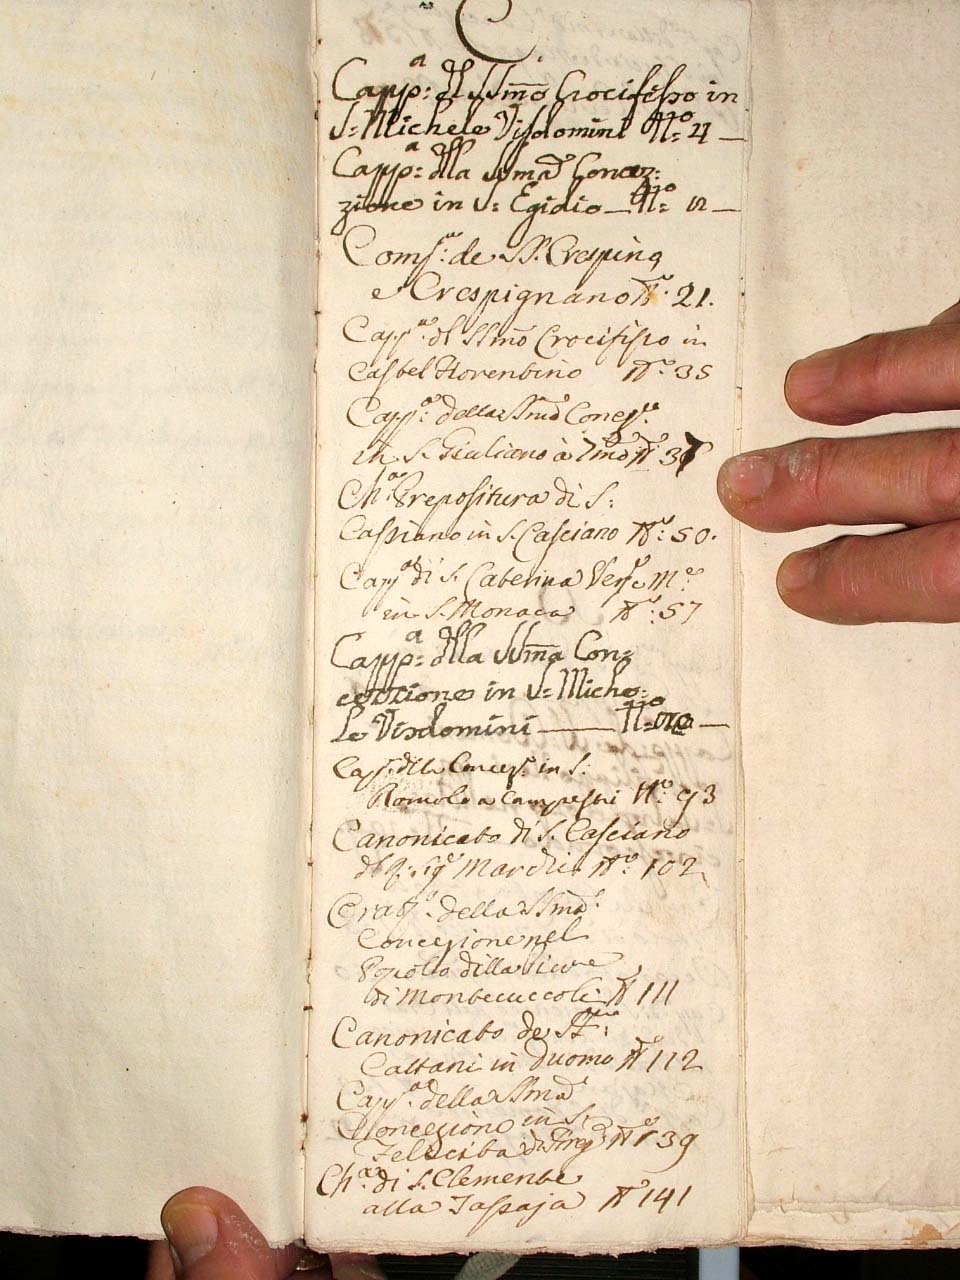 C
Capp:a dl SSmo Crocifisso in
S: Michele Visdomini No: 4
Capp:a dlla SSma Concez:
zione in S: Egidio No: 12
Comp:a de SS. Crespino
e Crespignano No: 21.
Capp:a dl SSmo Crocifisso in
Castel Fiorentino No: 35
Capp:a della SSma Concez:e
in S. Giuliano à No 36
Ch:a Prepositura di S:
Cassiano in S. Casciano No: 50.
Capp:a di S. Caterina Verg:e M:e
in S. Monaca No: 57
Capp:a dlla SSma Con:
cezzione in S: Miche:
le Visdomini No:
Cap: dlla Concez:e in S:
Romolo a Campestri No: 93
Canonicato di S. Casciano
dl q: Sig:e No: 102
della SSma
Concezione nel
Popolo della Pieve
di Montecuccoli No 111
Canonicato de SS:
Cattani in Duomo No 112
Capp:a della SSma
Concezione in S.
Felicita di Firze No 139
Ch:a di S. Clemente
alla Sassaja No 141